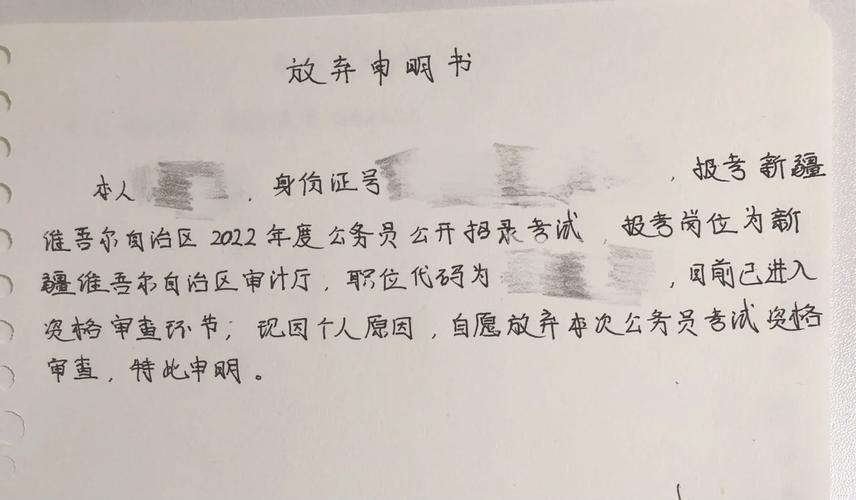 放弃申明书
本人，身份证号，报考新疆
维吾尔自治区2022年度公务员公开招录考试，报考岗位为新
疆维吾尔自治区审计厅，职位代码为，目前已进入
资格审查环节；现因个人原因，自愿放弃本次公务员考试资格
审查，特此申明。